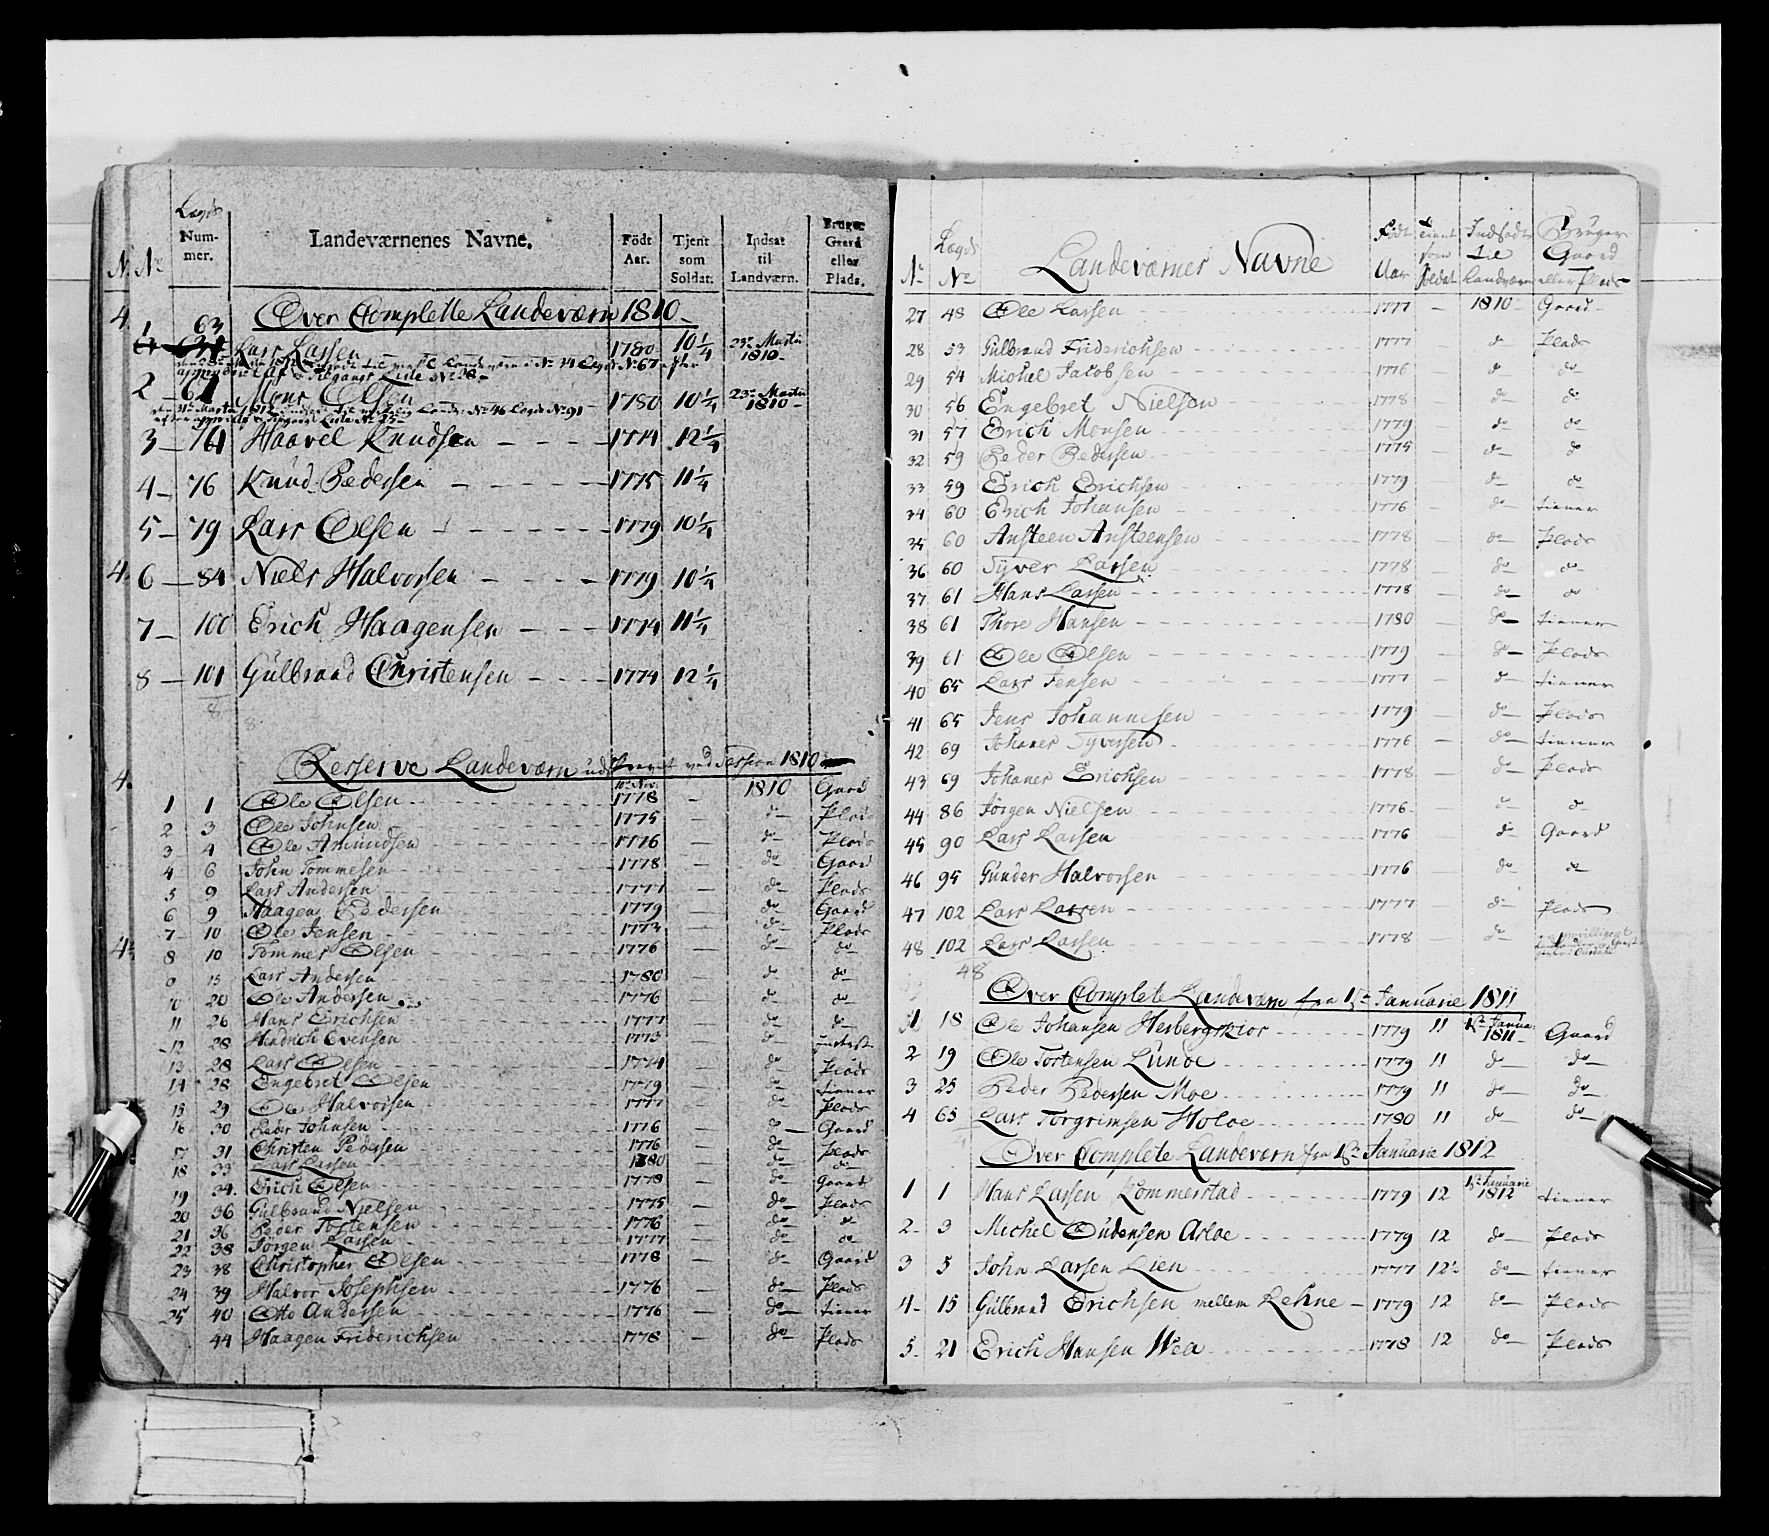 Lægds
N. No. Num-mer. Landeværnenes Navne. Födt Aar. Tjent som Soldat. Indsat til Landværn. Bruger Gaard eller Plads.
4. Over Complette Landeværn 1810
1 63 Lars Larsen 1780 10¼ 23de Martii 1810
2 64 Mons Olsen 1780 10¼ 23de Martii 1810
3 74 Haavel Knudsen 1774 12¼
4 76 Knud Pedersen 1775 11¼
5 79 Lars Olsen 1779 10¼
4. 6 84 Niels Halvorsen 1779 10¼
7 100 Erich Haagensen 1774 11¼
8 101 Gulbrand Christensen 1774 12¼
8
8
4. Reserve Landeværn udskrevet ved Session 1810
10de Nov.
1 1 Ole Olsen 1778 – 1810 Gaard
2 3 Ole Johnsen 1775 – do Plads
3 4 Ole Amundsen 1776 – do Plads
4 6 John Tommesen 1778 – do Gaard
5 9 Lars Andersen 1777 – do Plads
6 9 Haagen Pedersen 1779 – do Gaard
7 10 Ole Jensen 1773 – do Plads
4. 8 10 Tommes Olsen 1776 – do do
9 15 Lars Andersen 1780 – do do
10 20 Ole Andersen 1776 – do do
11 26 Hans Erichsen 1777 – do do
12 28 Hendrich Evensen 1773 – do
13 28 Lars Olsen 1774 – do Plads
14 28 Engebret Olsen 1779 – do tiener
15 29 Ole Halvorsen 1777 – do Plads
16 30 Peder Johnsen 1776 – do Gaard
17 31 Christen Pedersen 1776 – do Plads
18 33 Lars Larsen 1780 – do do
19 34 Erich Olsen 1778 – do Gaard
20 36 Gulbrand Nielsen 1775 – do Plads
21 36 Peder Tostensen 1776 – do do
22 38 Jörgen Larsen 1777 – do do
23 38 Christopher Olsen 1778 – do Gaard
24 39 Halvor Josephsen 1776 – do Plads
25 40 Otto Andersen 1776 – do tiener
44 Haagen Friderichsen 1778 – do Plads
No. Lægds No. Landeværnes Navne Födt Aar tient som Soldat Indsadt til Landværn Bruger Gaard eller Plads
27 48 Ole Larsen 1777 – 1810 Gaard
28 53 Gulbrand Friderichsen 1777 do Plads
29 54 Michel Jacobsen 1776 do do
30 56 Engebret Nielsen 1778 – do do
31 57 Erich Monsen 1779 – do do
32 59 Peder Pedersen 1775 – do do
33 59 Erich Erichsen 1779 – do do
34 60 Erich Johansen 1776 – do tiener
35 60 Ansteen Ansteensen 1778 – do Plads
36 60 Syver Larsen 1778 – do do
37 61 Hans Larsen 1778 – do do
38 61 Thore Hansen 1780 – do tiener
39 61 Ole Olsen 1779 – do Plads
40 65 Lars Jensen 1777 – do tiener
41 65 Jens Johannesen 1779 – do Plads
42 69 Johanes Syversen 1776 – do tiener
43 69 Johanes Erichsen 1778 – do Plads
44 86 Jörgen Nielsen 1776 – do do
45 90 Lars Larsen 1776 – do Gaard
46 95 Gunder Halvorsen 1776 – do do
47 102 Lars Larsen 1777 – do Plads
48 102 Lars Larsen 1778 – do
48
Over Complete Landeværn fra 1ste Januarie 1811
1 18 Ole Johansen Herbergskior 1779 11 1ste Janua. 1811 Gaard
2 19 Ole Tortensen Lunde 1779 11 do do
3 25 Peder Pedersen Moe 1779 11 do do
4 65 Lars Torgrimsen Holoe 1780 11 do do
Over Complete Landeværn fra 1ste Januarie 1812
1 1 Hans Larsen Kommerstad 1779 12 1ste Januarie 1812 tiener
2 3 Michel Gudensen Asloe 1779 12 do Plads
3 5 John Larsen Lien 1777 12½ do tiener
4 15 Gulbrand Erichsen mellem Lehne 1779 12 do Plads
5 21 Erich Hansen Wea 1778 12 do Plads